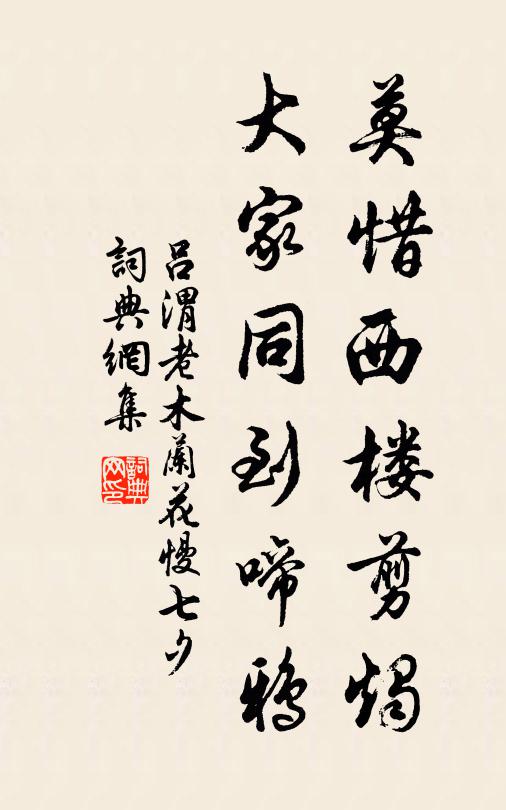 莫惜西楼剪烛
大家同到啼鸦
吕渭老木蘭花慢七夕
詞典網集
詞典网印